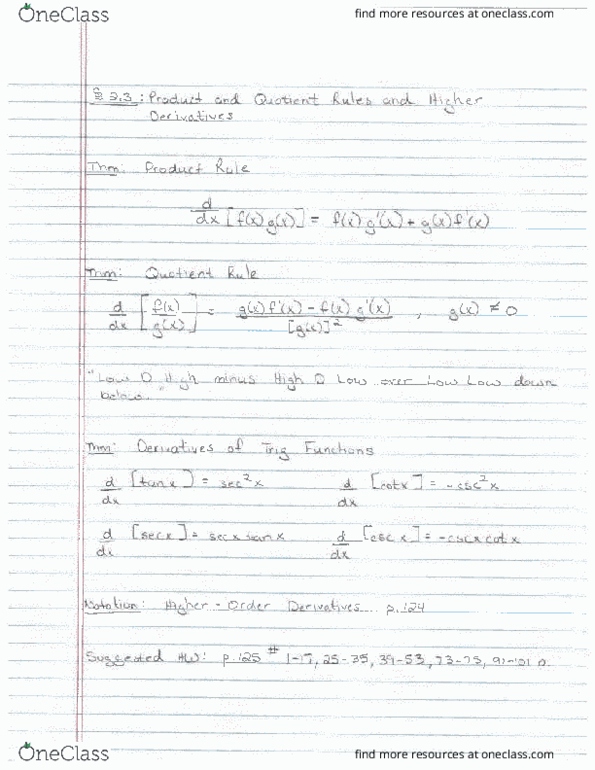 OneClass
find more resources at oneclass.com
§ 2.3: Product and Quotient Rules and Higher
Derivatives
Thm: Product Rule
d/dx [f(x)g(x)] = f(x)g'(x) + g(x)f'(x)
Thm: Quotient Rule
d/dx [f(x)/g(x)] = g(x)f'(x) - f(x)g'(x) / [g(x)]² , g(x) ≠ 0
"Low D High minus High D Low over Low Low down
below."
Thm: Derivatives of Trig Functions
d/dx [tanx] = sec²x d/dx [cotx] = -csc²x
d/dx [secx] = secx tanx d/dx [csc x] = -cscx cotx
Notation: Higher-Order Derivatives... p. 124
Suggested HW: p. 125 # 25-35, 39-53,
OneClass
find more resources at oneclass.com